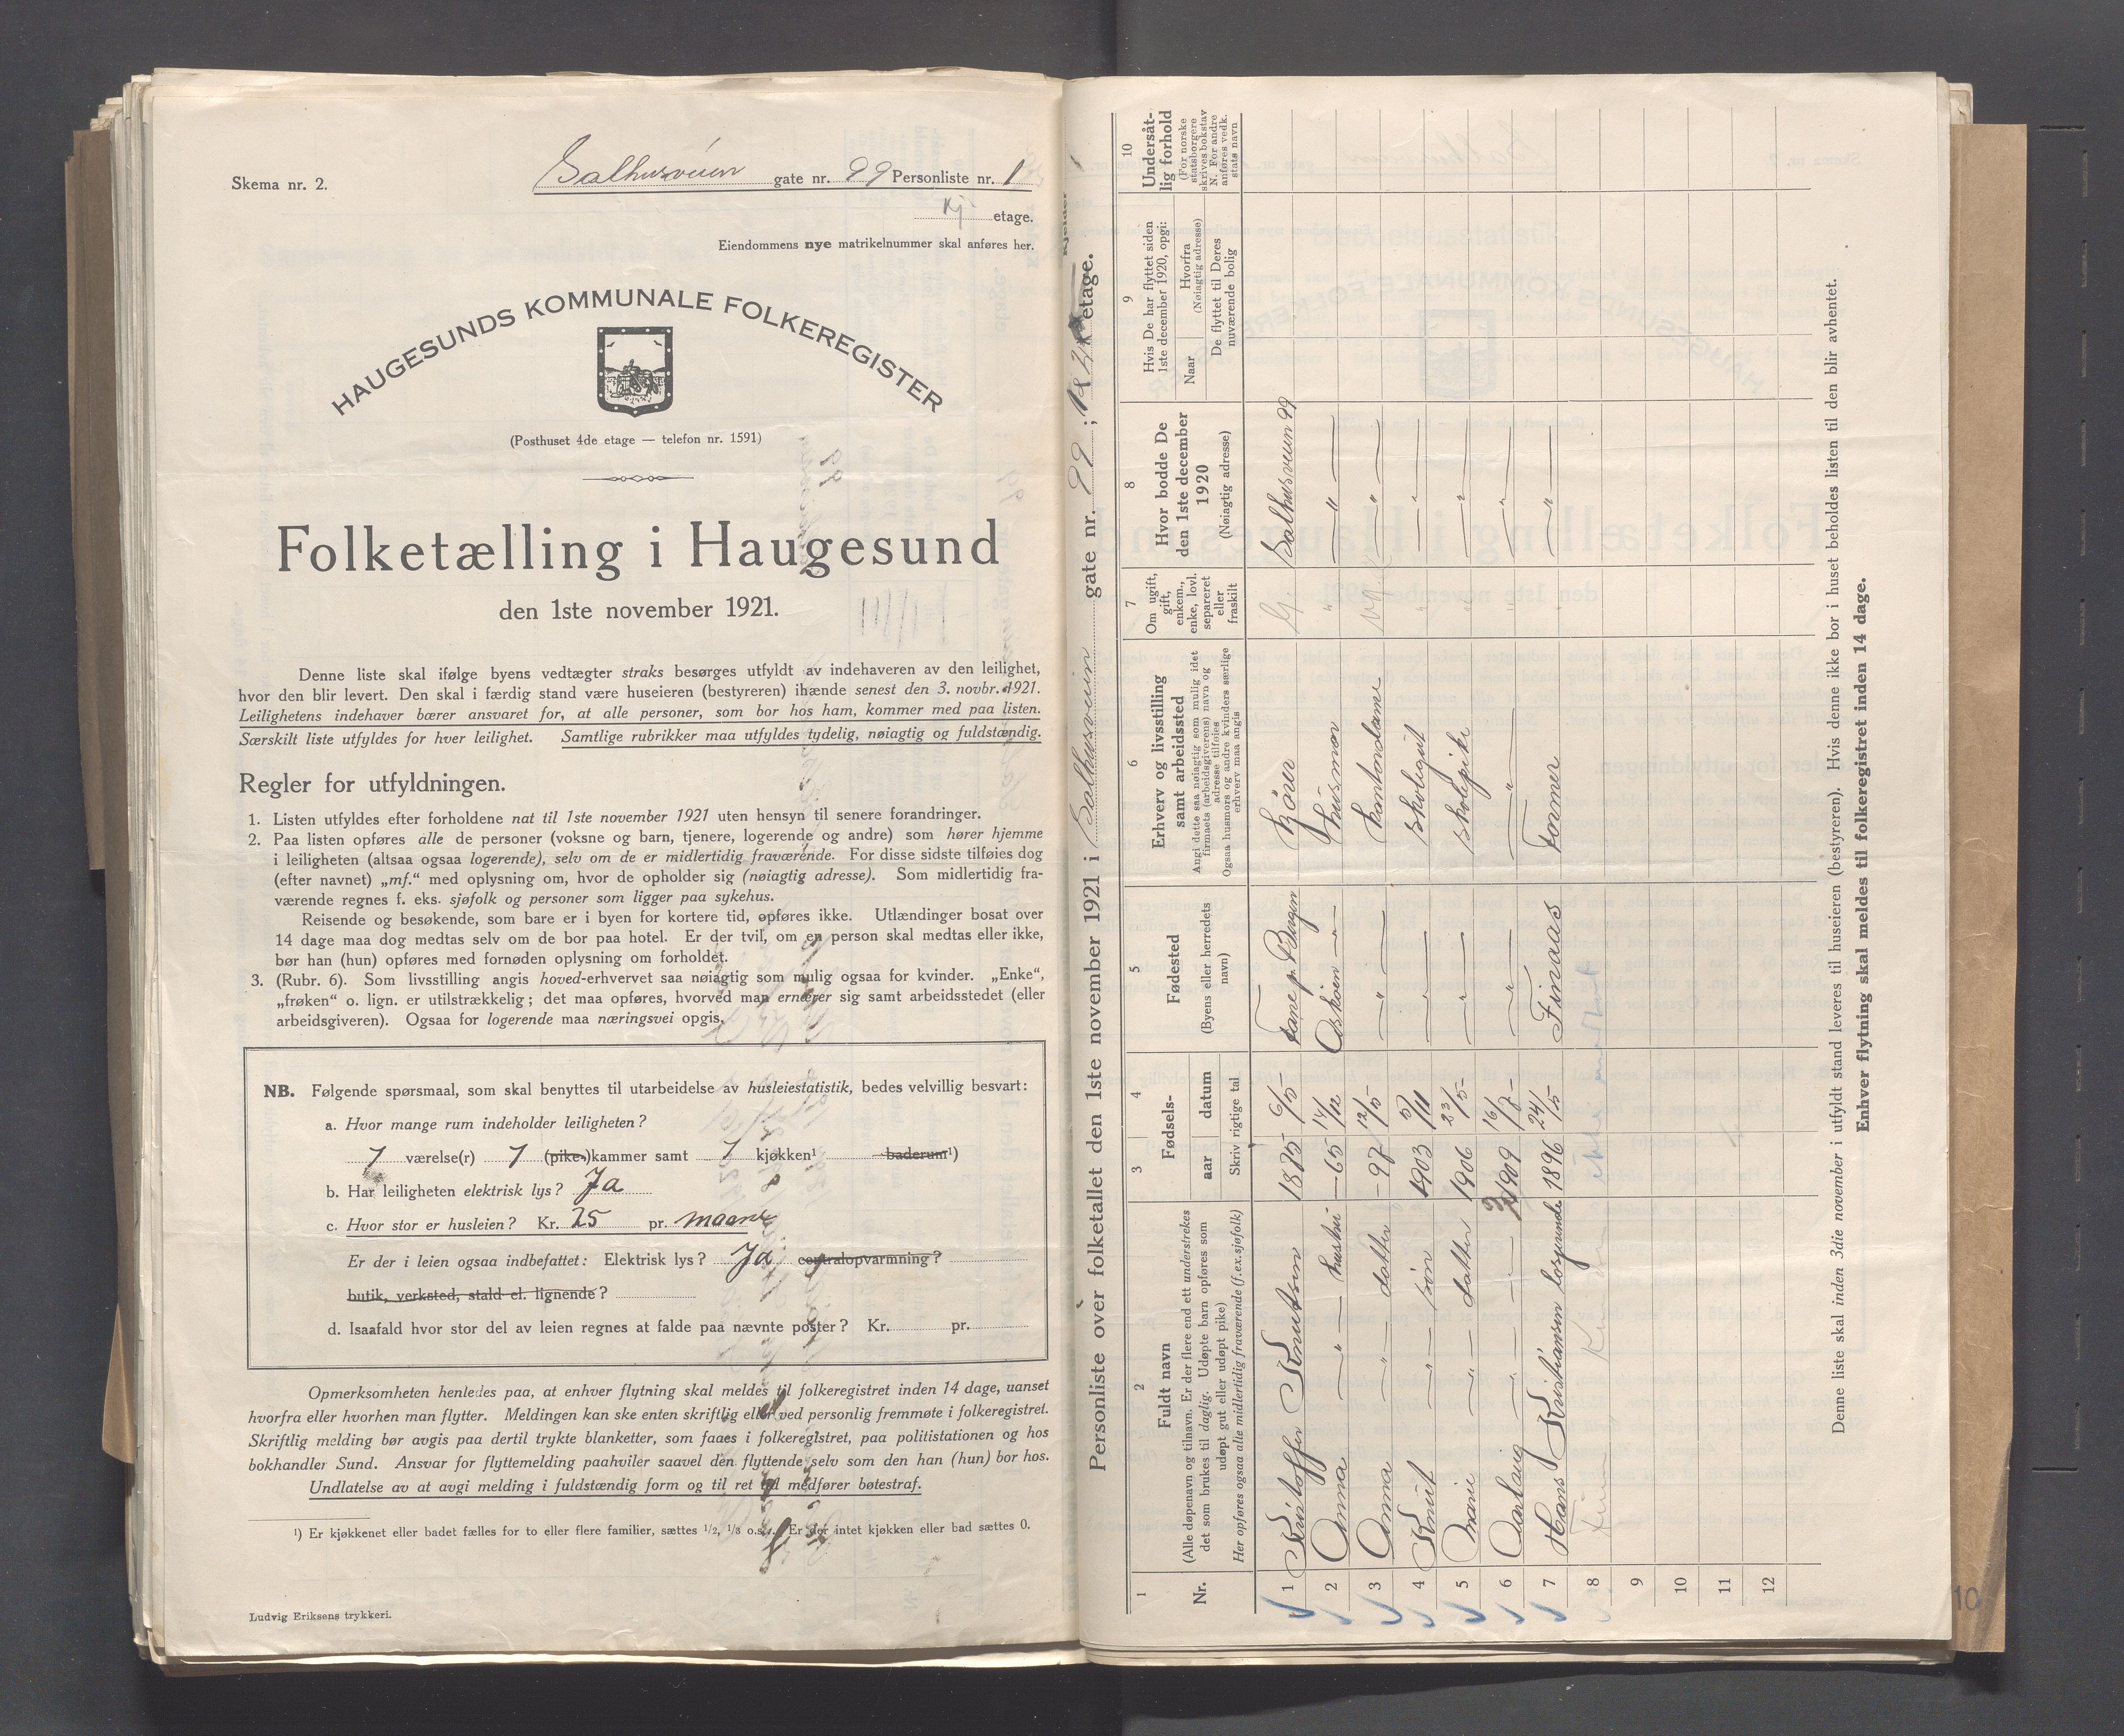 Skema nr. 2.
Salhusveien gate nr. 99 Personliste nr. 1
Kj. etage.
Eiendommens nye matrikelnummer skal anføres her.
HAUGESUNDS KOMMUNALE FOLKEREGISTER
(Posthuset 4de etage — telefon nr. 1591)
Folketælling i Haugesund
den 1ste november 1921.
Denne liste skal ifølge byens vedtægter straks besørges utfyldt av indehaveren av den leilighet,
hvor den blir levert. Den skal i færdig stand være huseieren (bestyreren) ihænde senest den 3. novbr. 1921.
Leilighetens indehaver bærer ansvaret for, at alle personer, som bor hos ham, kommer med paa listen.
Særskilt liste utfyldes for hver leilighet. Samtlige rubrikker maa utfyldes tydelig, nøiagtig og fuldstændig.
Regler for utfyldningen.
1. Listen utfyldes efter forholdene nat til 1ste november 1921 uten hensyn til senere forandringer.
2. Paa listen opføres alle de personer (voksne og barn, tjenere, logerende og andre) som hører hjemme
i leiligheten (altsaa ogsaa logerende), selv om de er midlertidig fraværende. For disse sidste tilføies dog
(efter navnet) „mf.“ med oplysning om, hvor de opholder sig (nøiagtig adresse). Som midlertidig fra-
værende regnes f. eks. sjøfolk og personer som ligger paa sykehus.
Reisende og besøkende, som bare er i byen for kortere tid, opføres ikke. Utlændinger bosat over
14 dage maa dog medtas selv om de bor paa hotel. Er der tvil, om en person skal medtas eller ikke,
bør han (hun) opføres med fornøden oplysning om forholdet.
3. (Rubr. 6). Som livsstilling angis hoved-erhvervet saa nøiagtig som mulig ogsaa for kvinder. „Enke“,
„frøken“ o. lign. er utilstrækkelig; det maa opføres, hvorved man ernærer sig samt arbeidsstedet (eller
arbeidsgiveren). Ogsaa for logerende maa næringsvei opgis.
NB. Følgende spørsmaal, som skal benyttes til utarbeidelse av husleiestatistik, bedes velvillig besvart:
a. Hvor mange rum indeholder leiligheten?
1 værelse(r) 1 (pike-)kammer samt 1 kjøkken¹ baderum¹)
b. Har leiligheten elektrisk lys? Ja
c. Hvor stor er husleien? Kr. 25 pr. maaned
Er der i leien ogsaa indbefattet: Elektrisk lys? Ja centralopvarmning?
butik, verksted, stald el. lignende?
d. Isaafald hvor stor del av leien regnes at falde paa nævnte poster? Kr. pr.
Opmerksomheten henledes paa, at enhver flytning skal meldes til folkeregistret inden 14 dage, uanset
hvorfra eller hvorhen man flytter. Meldingen kan ske enten skriftlig eller ved personlig fremmøte i folkeregistret.
Skriftlig melding bør avgis paa dertil trykte blanketter, som faaes i folkeregistret, paa politistationen og hos
bokhandler Sund. Ansvar for flyttemelding paahviler saavel den flyttende selv som den han (hun) bor hos.
Undlatelse av at avgi melding i fuldstændig form og til ret tid medfører bøtestraf.
¹) Er kjøkkenet eller badet fælles for to eller flere familier, sættes 1/2, 1/3 o.s.v. Er der intet kjøkken eller bad sættes 0.
Ludvig Eriksens trykkeri.
Personliste over folketallet den 1ste november 1921 i Salhusveien gate nr. 99; etage.
1 2 3 4 5 6 7 8 9 10
Nr.
Fuldt navn
(Alle døpenavn og tilnavn. Er der flere end ett understrekes
det som brukes til daglig. Udøpte barn opføres som
udøpt gut eller udøpt pike)
Her opføres ogsaa alle midlertidig fraværende (f.ex.sjøfolk)
Fødsels-
aar datum
Skriv rigtige tal
Fødested
(Byens eller herredets
navn)
Erhverv og livsstilling
samt arbeidssted
Angi dette saa nøiagtig som mulig idet
firmaets (arbeidsgiverens) navn og
adresse tilføies
Ogsaa husmors og andre kvinders særlige
erhverv maa angis
Om ugift,
gift,
enkem.,
enke, lovl.
separeret
eller
fraskilt
Hvor bodde De
den 1ste december
1920
(Nøiagtig adresse)
Hvis De har flyttet siden
1ste december 1920, opgi:
Naar
Hvorfra
(Nøiagtig adresse)
De flyttet til Deres
nuværende bolig
Undersåt-
lig forhold
(For norske
statsborgere
skrives bokstav
N. For andre
anføres vedk.
stats navn
1 Kristoffer Knutsen 1875 6/5 Fane p. Bergen Kjører G. Salhusveien 99
2 Anna — " — hustru — 65 14/12 Askøen — " — husmor " — " —
3 Anna — " — datter — 97 12/5 — " — Kontordame ug — " —
4 Knut — " — søn 1903 5/11 — " — skolegut " — " —
5 Marie — " — datter 1906 23/5 — " — skolepike " — " —
6 Aaslaug — " — 1909 16/7 — " — — " — " — " —
7 Hans Kristiansen losjerende 1896 24/5 Finaas Former — " —
8
9
10
11
12
Denne liste skal inden 3die november i utfyldt stand leveres til huseieren (bestyreren). Hvis denne ikke bor i huset beholdes listen til den blir avhentet.
Enhver flytning skal meldes til folkeregistret inden 14 dage.
10